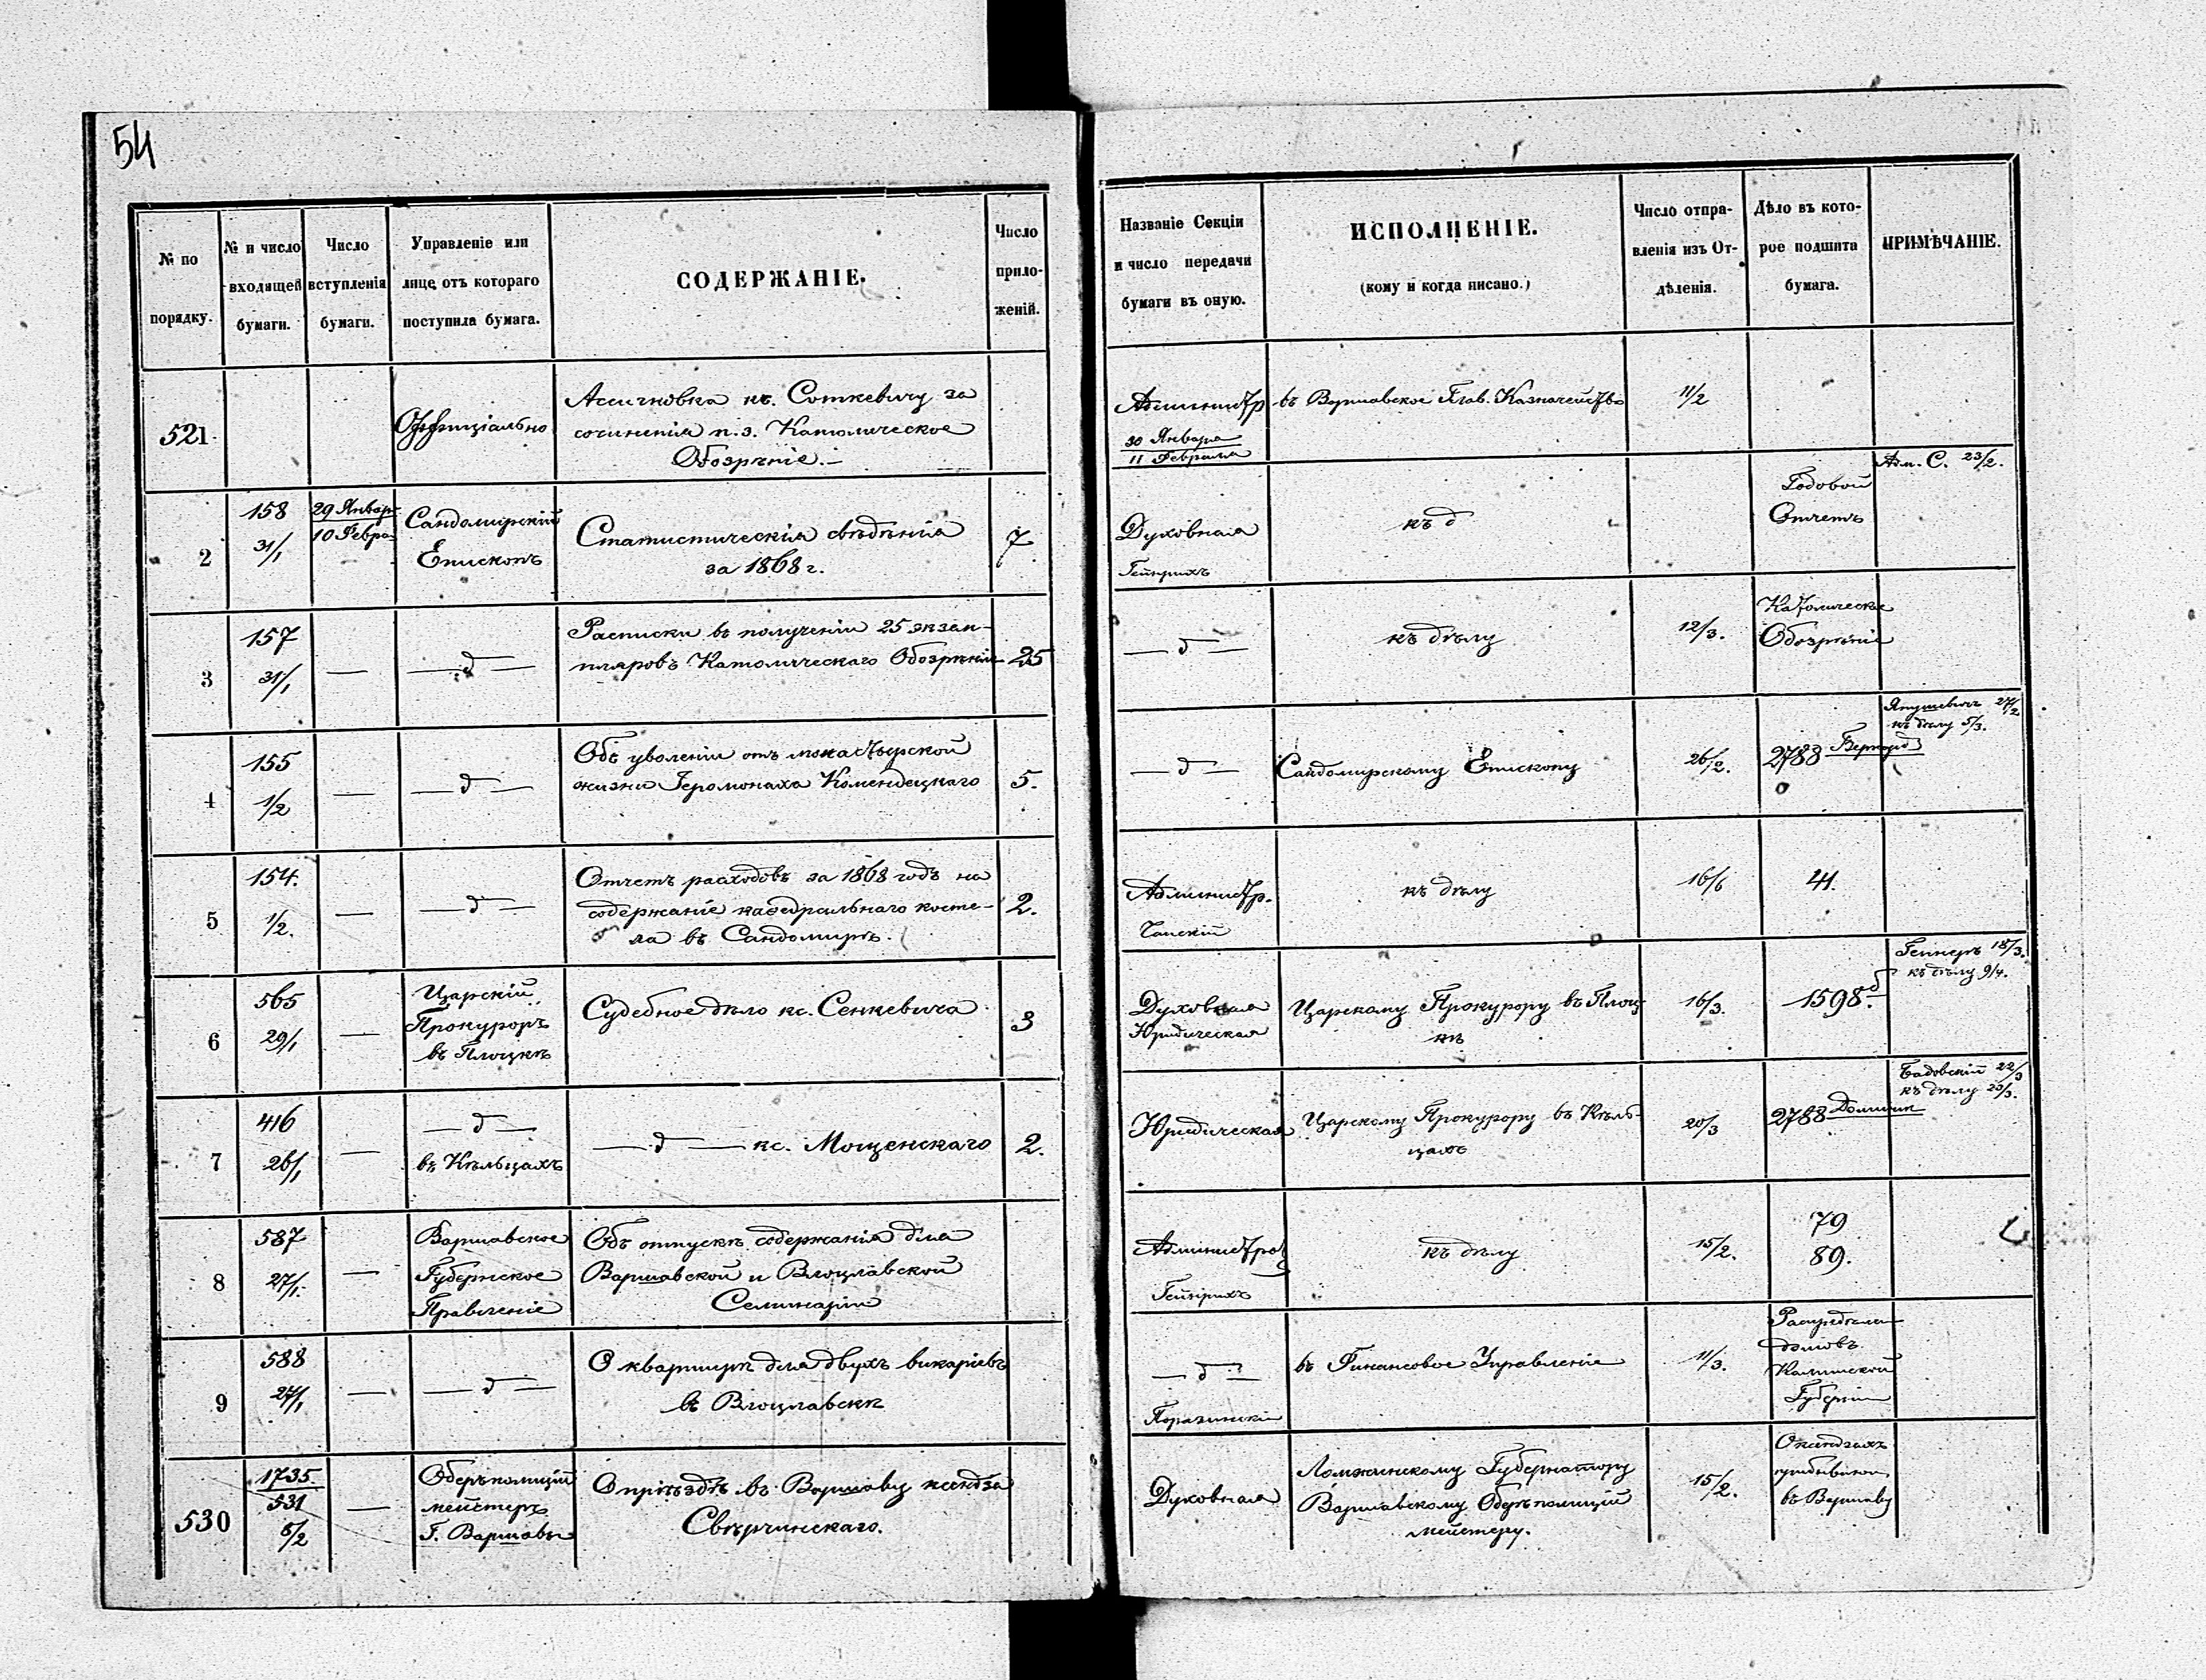 54
№ по
порядку.
№ и число
входящей
бумаги.
Число
вступленія
бумаги.
Управленіе или
лице отъ котораго
поступила бумага.
СОДЕРЖАНІЕ.
Число
прило-
женій.
Названіе Секціи
и число передачи
бумаги въ оную.
ИСПОЛНЕНІЕ.
(кому и когда писано.)
Число отпра-
вленія изъ От-
дѣленія.
Дѣло въ кото-
рое подшита
бумага.
ПРИМѢЧАНІЕ.
521
Оффиціально
Ассигновка кс. Соткевичу за
сочиненія п. з. Католическое
Обозрѣніе.–
Администр
30 Января
11 Февраля
въ Варшавское Глав. Казначейство
11/2
2
158
31/1
29 Январ
10 Февра
Сандомирскій
Епископъ
Статистическія свѣдѣнія
за 1868 г.
7
Духовная
Гейнрихъ
къ д
Годовой
Отчетъ
Адм. С. 23/2.
3
157
31/1
—
— д —
Расписки въ полученіи 25 экзем-
пляровъ Католическаго Обозрѣнія
25
— д —
къ дѣлу
12/3.
Католическое
Обозрѣніе
4
155
1/2
—
— д —
Объ уволеніи отъ монастырской
жизни Іеромонаха Комендецкаго
5.
— д —
Сандомирскому Епископу
26/2.
2788 Бернард
Янушевичъ 27/2
къ дѣлу 5/3.
5
154.
1/2.
—
— д —
Отчетъ расходовъ за 1868 годъ на
содержаніе каѳедральнаго косте-
ла въ Сандомирѣ.
2.
Администр.
къ дѣлу
16/6
41.
6
565
29/1
—
Царскій
Прокуроръ
въ Плоцкѣ
Судебное дѣло кс. Сенкевича
3
Духовная
Юридическая
Царскому Прокурору въ Плоц-
кѣ
16/3.
1598.
къ дѣлу 9/4.
7
416
26/1
—
— д —
въ Кѣльцахъ
— д — кс. Мощенскаго
2.
Юридическая
Царскому Прокурору въ Кѣль-
цахъ
20/3
2788 Доминик
Садовскій 22/3
къ дѣлу 23/3.
8
587
27/1.
—
Варшавское
Губернское
Правленіе
Объ отпускѣ содержанія для
Варшавской и Влоцлавской
Семинаріи
Администра
Гейнрихъ
къ дѣлу
15/2.
79
89.
9
588
27/1
—
— д —
О квартирѣ для двухъ викаріевъ
въ Влоцлавскѣ
— д —
въ Финансовое Управленіе
11/3.
домовъ
Калишской
Губерніи
530
1735
531
8/2
—
Оберъполицій
мейстеръ
Г. Варшавы
О пріѣздѣ въ Варшаву ксендза
Свѣрчинскаго.
Духовная
Ломжинскому Губернатору
Варшавскому Оберъполицій
мейстеру.
15/2.
О ксендзахъ
въ Варшаву